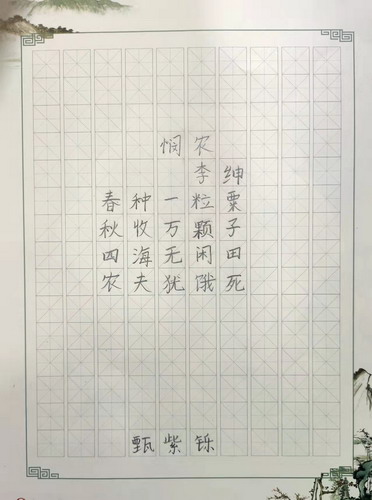 悯农
李绅
春种一粒粟
秋收万颗子
四海无闲田
农夫犹饿死
甄紫铄